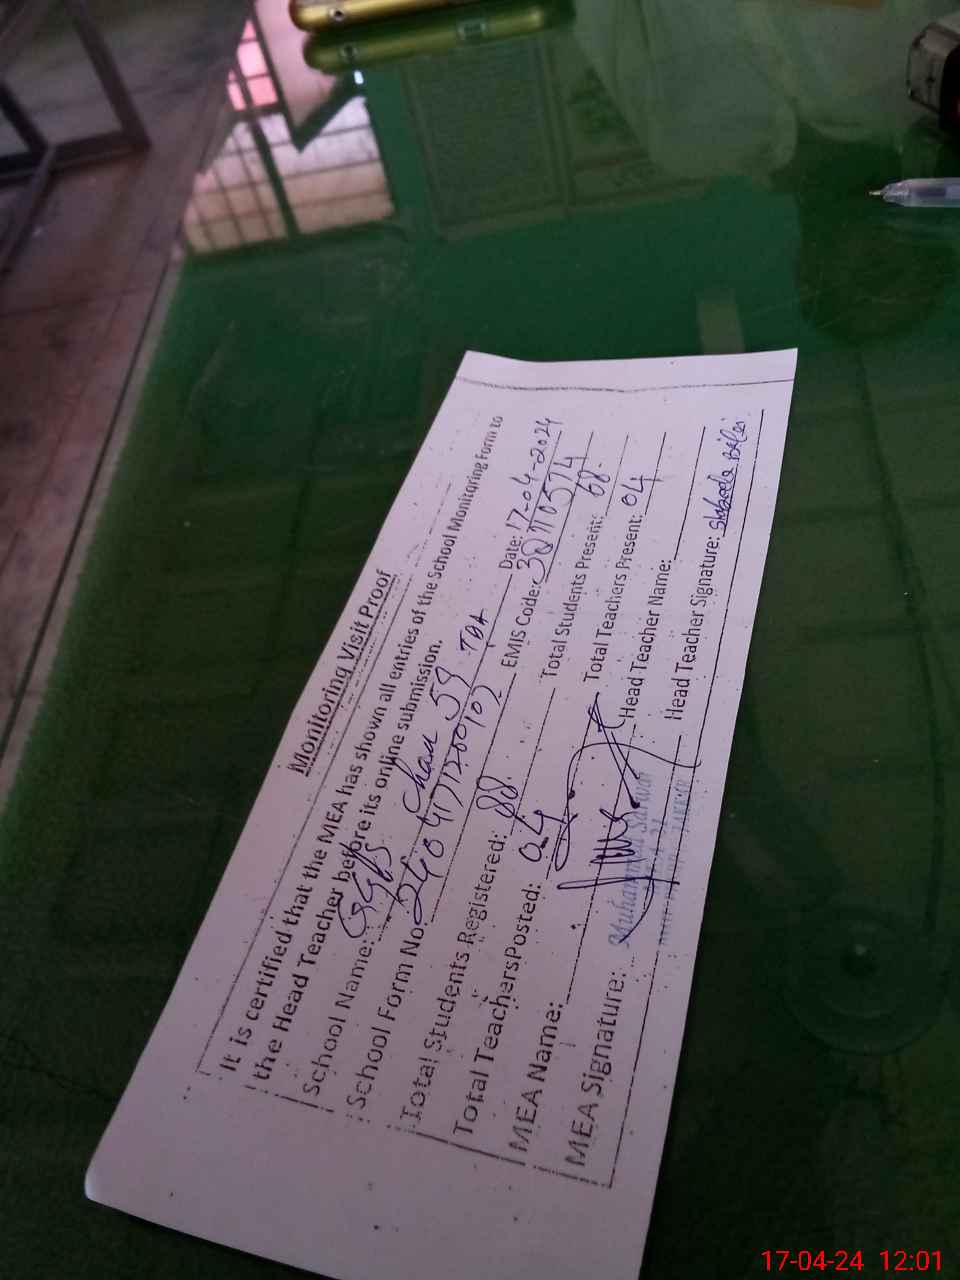 Monitoring Visit Proof
It is certified that the MEA has shown all entries of the School Monitoring Form to
the Head Teacher before its online submission.
School Name: GGPS Chak 59 TDA Date: 17-04-2024
School Form No: EMIS Code:
Total Students Registered: 88 Total Students Present: 68
Total TeachersPosted: 04 Total Teachers Present: 04
MEA Name: Head Teacher Name:
MEA Signature: Head Teacher Signature:
Muhammad Sarwar
17-04-24 12:01